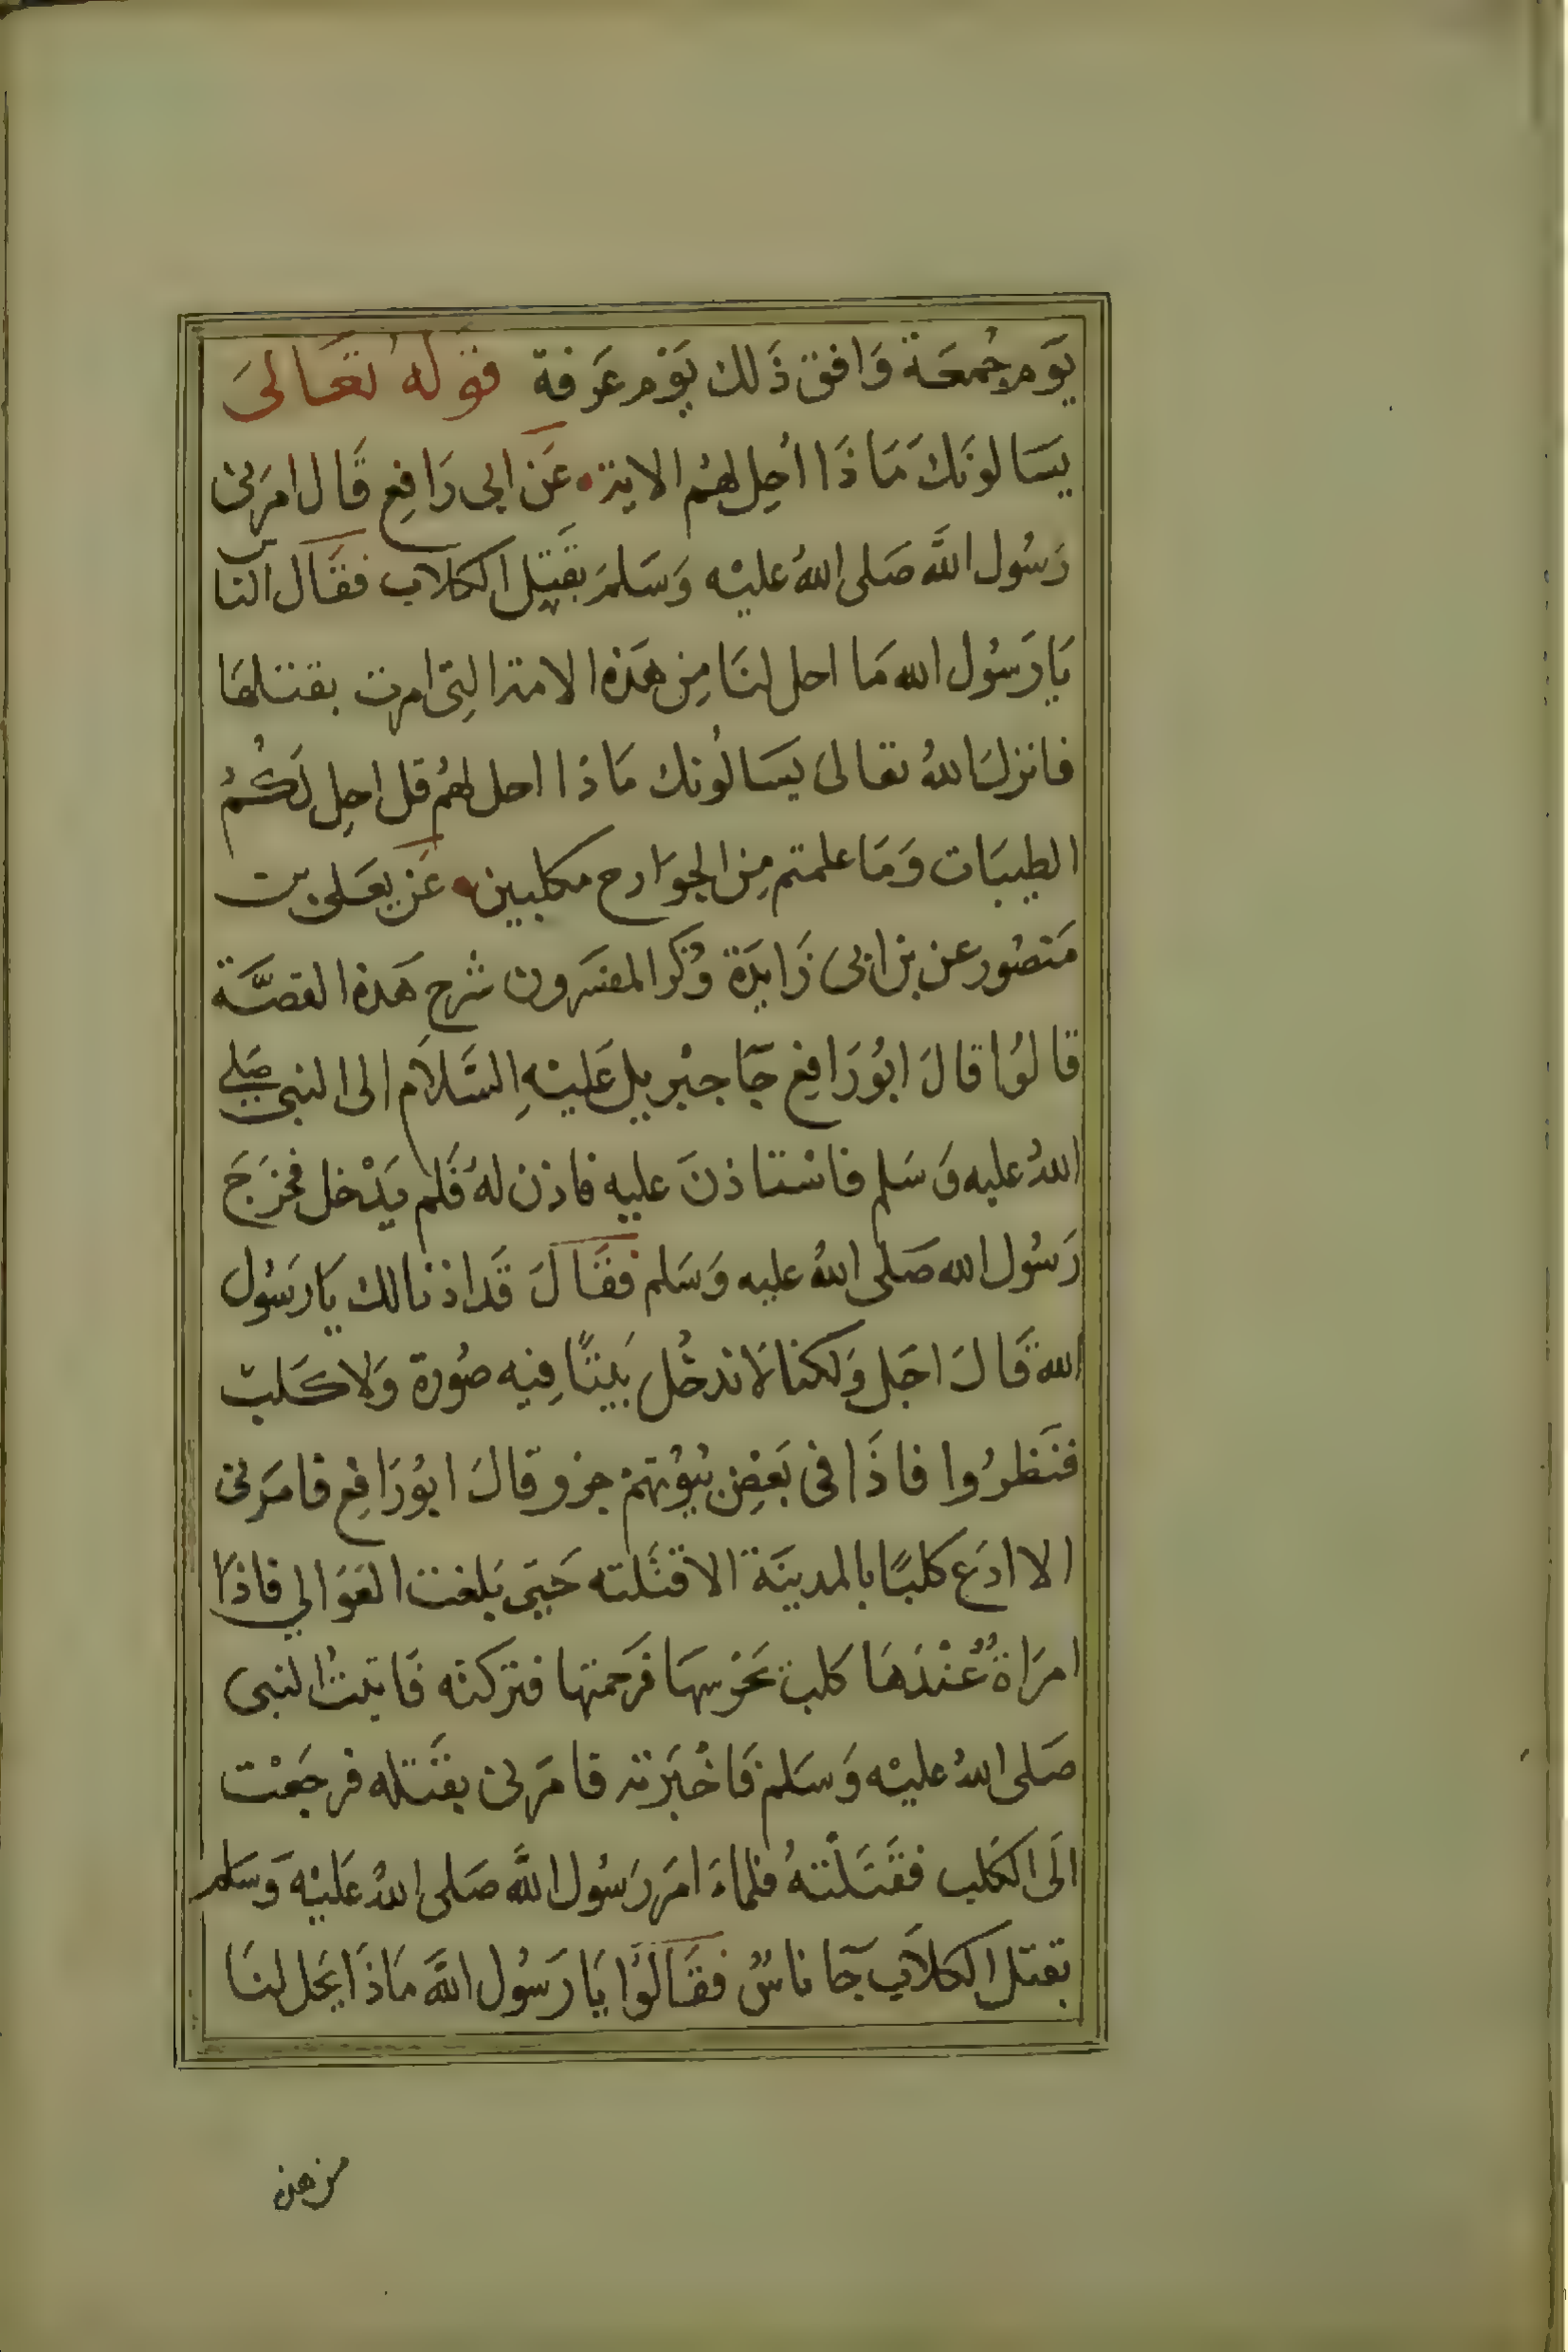 يَوم جُمعَة وَافق ذَلك يَوْم عَرفة قوله تعَالىَ
يسَالونَكَ مَاذَا اُحِل لهُم الاية عَن ابى رَافِع قَال امرَنى
رَسُول اللَّه صَلى اللهُ عليْه وَسَلمَ بقَتِل الكلاب فقَال الناس
يَا رَسُول الله مَا احل لنَا مِن هَذه الامة التِى امرت بقتلهَا
فانزلَ اللهُ تعَالىَ يسَالوُنك مَاذا احل لهُم قل احِل لَكُمُ
الطيبَات وَمَا علمتم مِن الجوَارح مكلبين عَن يعَلى بن
مَنصُور عن بن ابى زَايدَة وَذكر المفسَرون شرح هَذه القصَّة
قالوُا قالَ ابُورَافِع جَآ جبْريل عَليْهِ السَّلاَم الى النبى صَلى
اللهُ عليه وَسَلم فاسْتاذنَ عليه فاذن لهُ فَلم يَدْخل فخرَجَ
رَسُول الله صَلى اللهُ عليه وَسَلم فقَالَ قَد اذنا لك يَا رَسُول
الله قَالَ اجَل وَلكنا لاَ ندخُل بَيتًا فِيه صُورة وَلا كَلبٌ
فنَظرُوا فاذَا فى بَعضِ بُيُوْتهمْ جرو قالَ ابوُرَافِع فامَرنى
الا ادَع كلبًا بالمدينَة الا قتَلته حَتىَ بَلغت العَوَالي فاذَا
امرَاةٌ عُنْدَهَا كلبٌ يَحْرسهَا فرَحمتها فتركته فَاتيتُ النبى
صَلى اللهُ عليْه وَسَلم فَاخْبَرته فامَرنى بقتَله فرجَعْت
الَى الكَلب فقَتَلْتهُ فلماءَ امَر رَسُول اللَّه صَلى اللهُ عَليْه وَسَلم
بقتل الكلاَب جَآ ناسٌ فقَالوُا يَا رَسُول اللَّه مَاذَا يَحل لنَا
من هذه